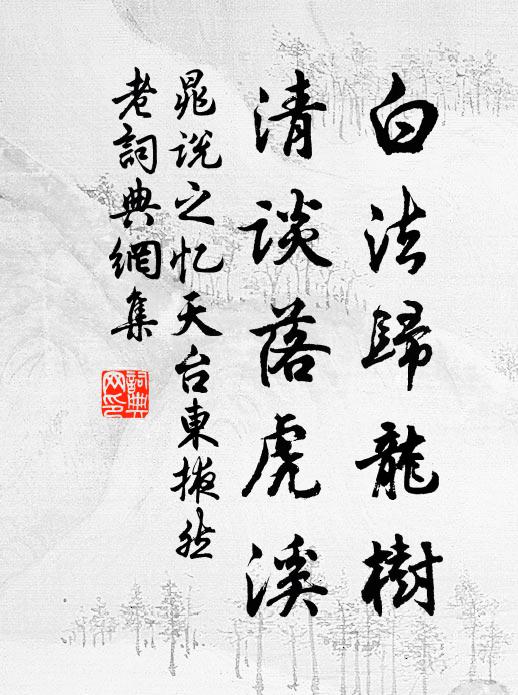 白法歸龍樹
清談落虎溪
晁說之忆天台東掖然
老詞典網集
詞典
网印